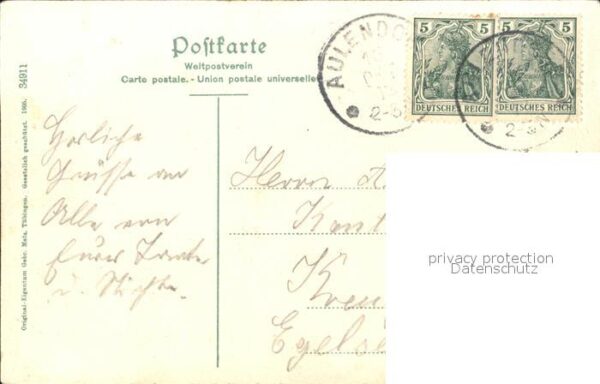 Postkarte
Weltpostverein
Carte postale. - Union postale universelle
AULENDO
2-5
5 5
DEUTSCHES REICH
5 5
DEUTSCHES REICH
2-5N
Original-Eigentum Gebr. Metz, Tübingen. Gesetzlich geschützt. 1905. 34911
Herzliche
Grüsse an
Alle von
Eurer Tante
u. Nichte.
Herrn
privacy protection
Datenschutz